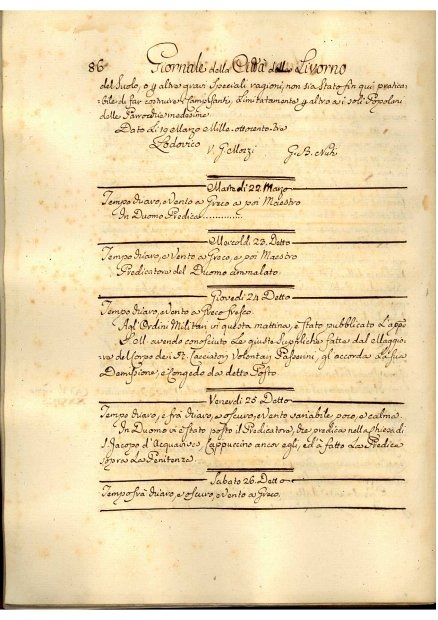 86 Giornale della Città di Livorno
del Suolo, o p altre gravi Speciali ragioni, non sia stato fin qui pratica-
bile di far costruire i Campisanti, limitatamente p altro a i soli Popolari
delle Parrocchie medesime
Dato li 19 Marzo Mille-ottocento-tre
Lodovico
V. G. B.
Martedì 22. Marzo
Tempo chiaro, e Vento a Greco a poi Maestro
In Duomo Predica
Mercoldì 23. Detto
Tempo chiaro, e Vento a Greco, e poi Maestro
Predicatore del Duomo ammalato
Giovedì 24 Detto
Tempo chiaro, e Vento a Greco fresco.
Agl'Ordini Militari di questa mattina, è stato pubblicato l'appo
S. M. avendo conosciuto le giuste Suppliche fatte dal Maggio-
re del Corpo dei R. Cacciatori Volontari Passerini, gl'accorda la sua
Demissione, e Congedo da detto Posto
Venerdì 25 Detto
Tempo chiaro, e frà chiaro, e oscuro, e Vento variabile poco, e calma.
In Duomo vi è stato posto il Predicatore, che predica nella Chiesa di
S. Jacopo d'Acquaviva Cappuccino ancor egli, ed à fatto la Predica
sopra la Penitenza
Sabato 26. Detto
Tempo frà chiaro, e oscuro, e Vento a Greco.